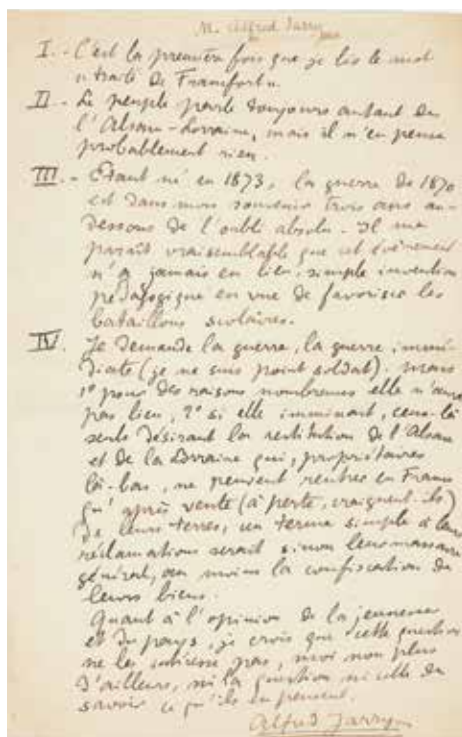 M. Alfred Jarry
I. - C'est la première fois que je lis le mot
« traité de Francfort ».
II - Le peuple parle toujours autant de
l'Alsace-Lorraine, mais il n'en pense
probablement rien.
III. - Étant né en 1873, la guerre de 1870
est dans mon souvenir trois ans au-
dessous de l'oubli absolu. Il me
paraît vraisemblable que cet événement
n'a jamais eu lieu, simple invention
pédagogique en vue de favoriser les
bataillons scolaires.
IV. Je demande la guerre, la guerre immé-
diate (je ne suis point soldat), mais
1° pour des raisons nombreuses elle n'aura
pas lieu, 2° si elle imminait, ceux-là
seuls désirant la restitution de l'Alsace
et de la Lorraine qui, propriétaires
là-bas, ne peuvent rentrer en France
qu'après vente (à perte, craignent-ils)
de leurs terres, un terme simple à leurs
réclamations serait sinon leur massacre
général, au moins la confiscation de
leurs biens.
Quant à l'opinion de la jeunesse
et du pays, je crois que cette question
ne les intéresse pas, moi non plus
d'ailleurs, ni la question ni celle de
savoir ce qu'ils en pensent.
Alfred Jarry